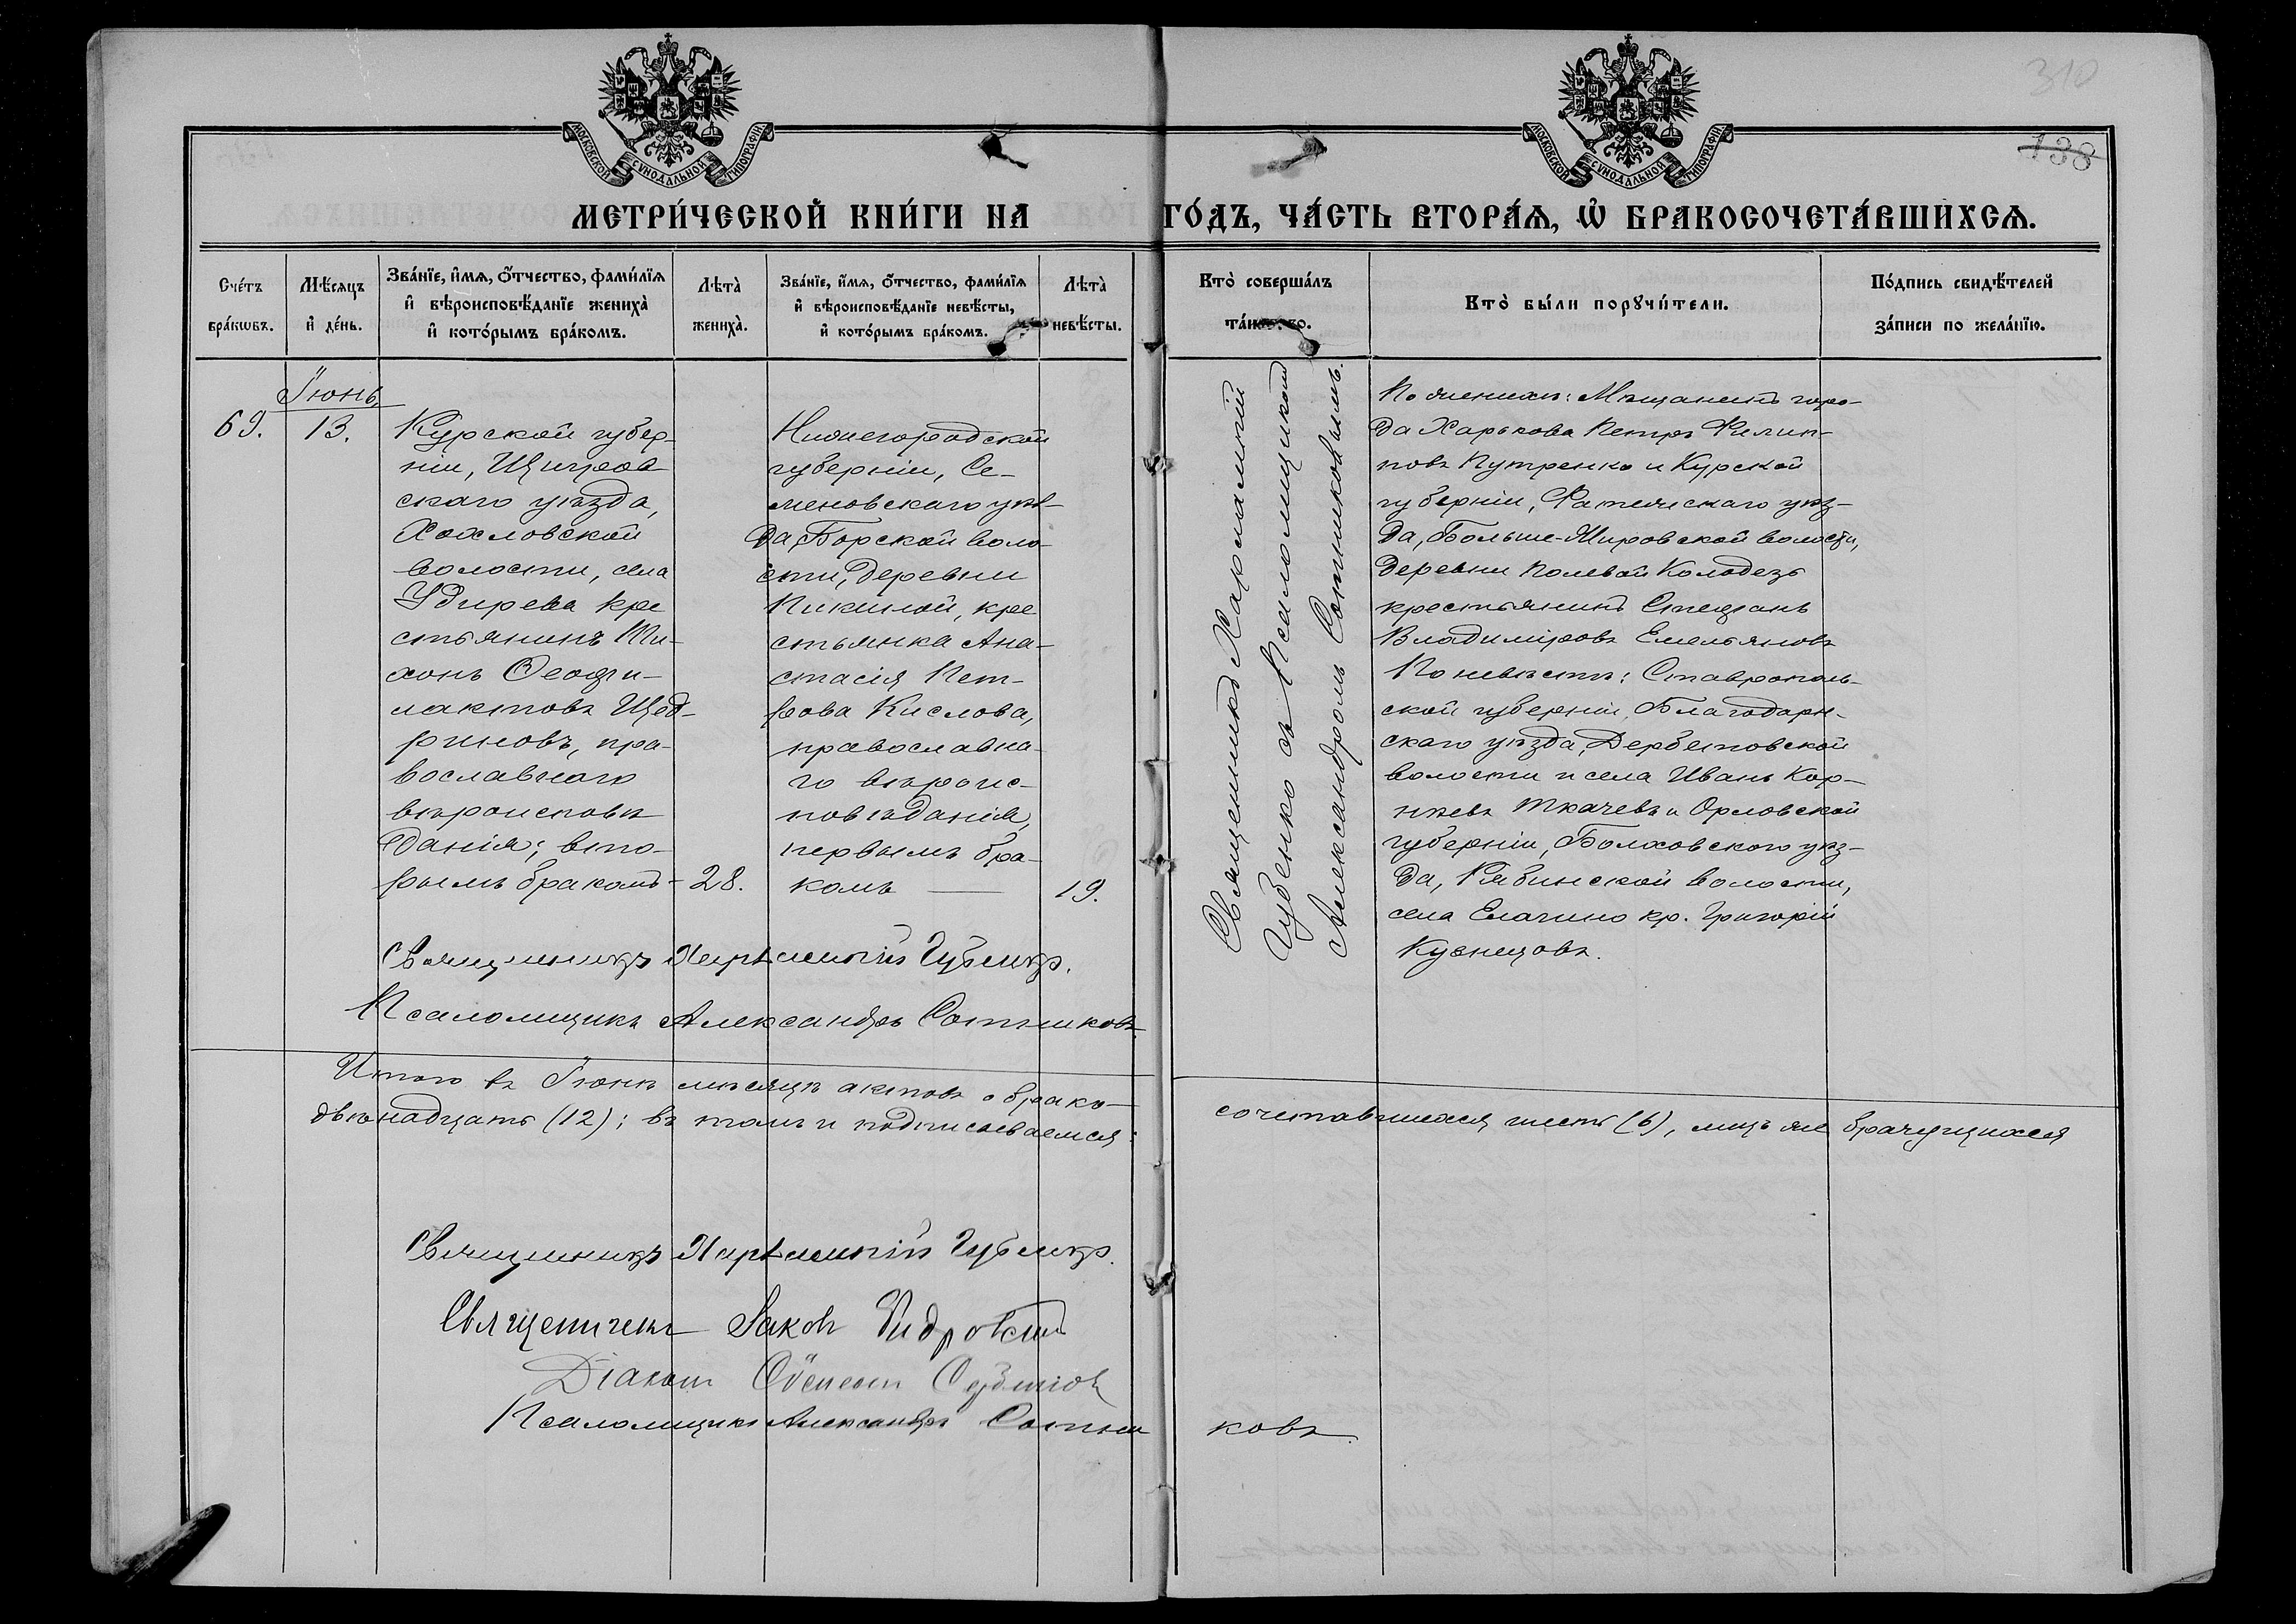 310
138
МОСКОВСКОЙ СѴНОДАЛЬНОЙ ТИПОГРАФІИ
МОСКОВСКОЙ СѴНОДАЛЬНОЙ ТИПОГРАФІИ
МЕТРИ́ЧЕСКОЙ КНИ́ГИ НА ГО́ДЪ, ЧА́СТЬ ВТОРА́Ѧ, Ѽ БРАКОСОЧЕТА́ВШИХСѦ.
Сче́тъ
бра́кѡвъ.
Мѣ́сѧцъ
и҆ де́нь.
Зва́нїе, и҆́мѧ, ѻ҆́тчество, фами́лїѧ
и҆ вѣроисповѣ́данїе жениха̀
и҆ кото́рымъ бра́комъ.
Лѣ́та̀
жениха̀.
Зва́нїе, и҆́мѧ, ѻ҆́тчество, фами́лїѧ
и҆ вѣроисповѣ́данїе невѣ́сты,
и҆ кото́рымъ бра́комъ.
Лѣ́та̀
невѣ́сты.
Кто̀ соверша́лъ
та́инство.
Кто̀ бы́ли порꙋчи́тели.
По́дпись свидѣ́телей
за́писи по жела́нїю.
Іюнь
69.
13.
Курской губер-
ніи, Щигров
скаго уѣзда,
Хохловской
волости, села
Удирева кре
стьянинъ Ти-
хонъ Ѳеофи-
лактовъ Щед-
риновъ, пра-
вославнаго
вѣроисповѣ
данія; вто-
рымъ бракомъ-
28.
Нижегородской
губерніи, Се-
меновскаго уѣз-
да, Борской воло-
сти, деревни
Пикиной, кре
стьянка Ана-
стасія Пет-
рова Кислова,
православна-
го вѣроис-
повѣданія,
первымъ бра-
комъ
19.
Священникъ Харлампій
Губенко съ Псаломщикомъ
Александромъ Сотниковымъ.
По женихѣ: Мѣщанинъ горо-
да Харькова Петръ Филип-
повъ Путренко и Курской
губерніи, Фатежскаго уѣз-
да, Больше-Жировской волости,
деревни Полевой Колодезь
крестьянинъ Стефанъ
Владиміровъ Емельяновъ
По невѣстѣ: Ставрополь-
ской губерніи, Благодарн-
скаго уѣзда, Дербетовской
волости и села Иванъ Кор-
нѣевъ Ткачевъ и Орловской
губерніи, Болховского уѣз-
да, Рябинской волости,
села Елагино кр. Григорій
Кузнецовъ.
Священникъ Харлампій Губенко.
Псаломщикъ Александръ Сотниковъ.
Итого въ Іюнѣ мѣсяцѣ актовъ о брако-
сочетавшихся шесть (6), лицъ же брачущихся
двѣнадцать (12); въ томъ и подписываемся:
Священникъ Харлампій Губенко.
Священникъ Іаковъ
Діаконъ
Псаломщикъ Александръ Сотни ковъ.